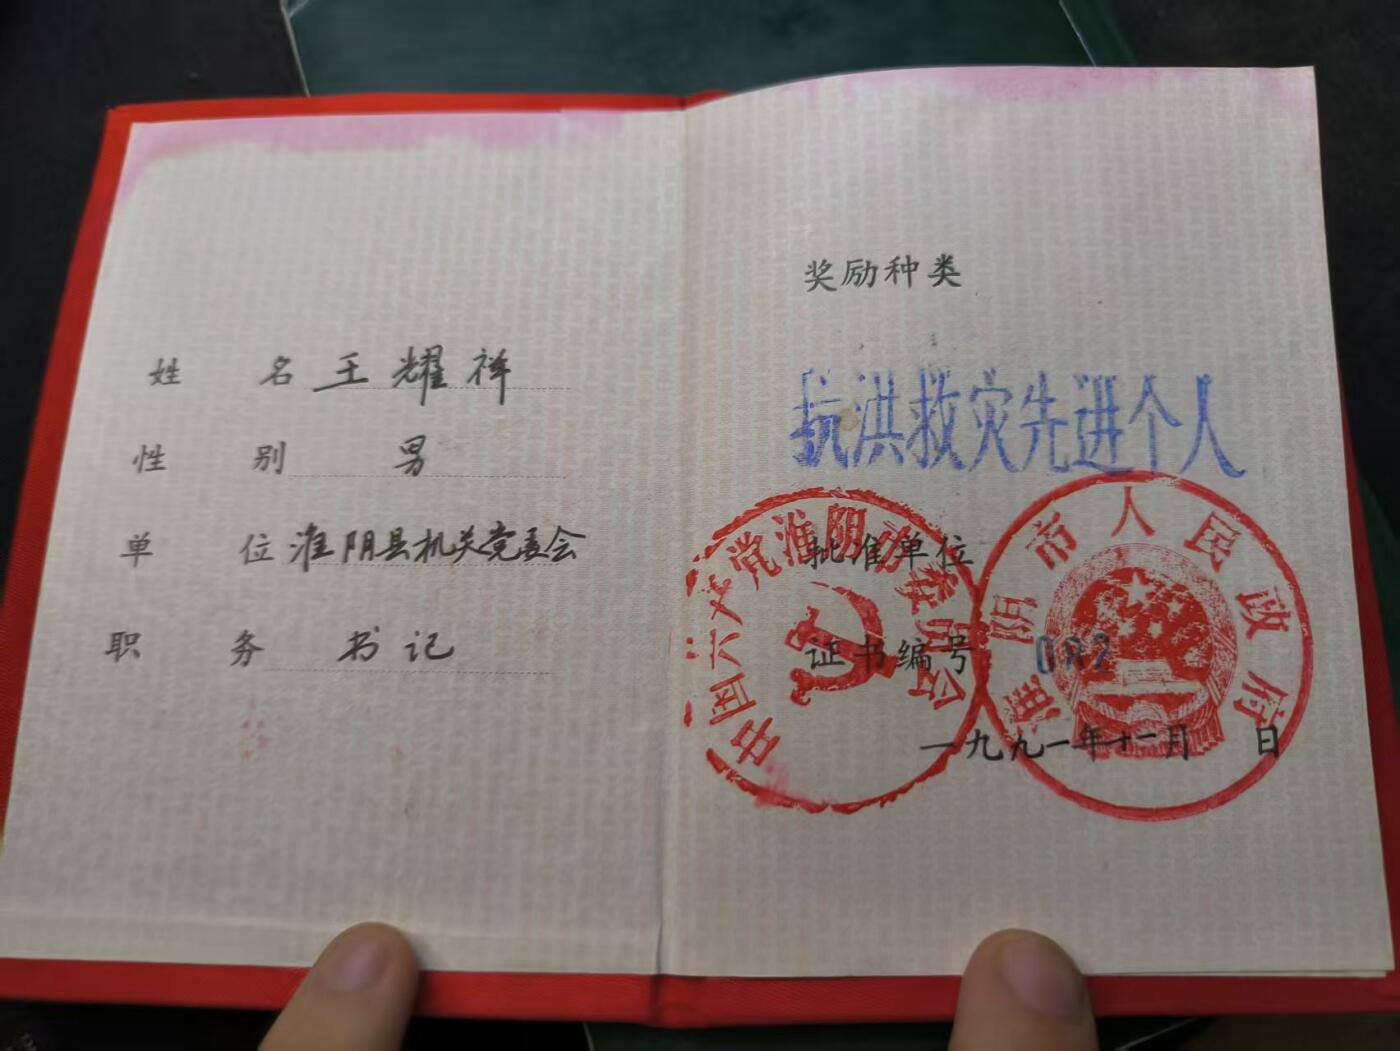 姓 名 王耀祥
性 别 男
单 位 淮阴县机关党委会
职 务 书记
奖励种类
抗洪救灾先进个人
批准单位
中国共产党淮阴市委员会
淮阴市人民政府
证书编号 082
一九九一年十一月 日